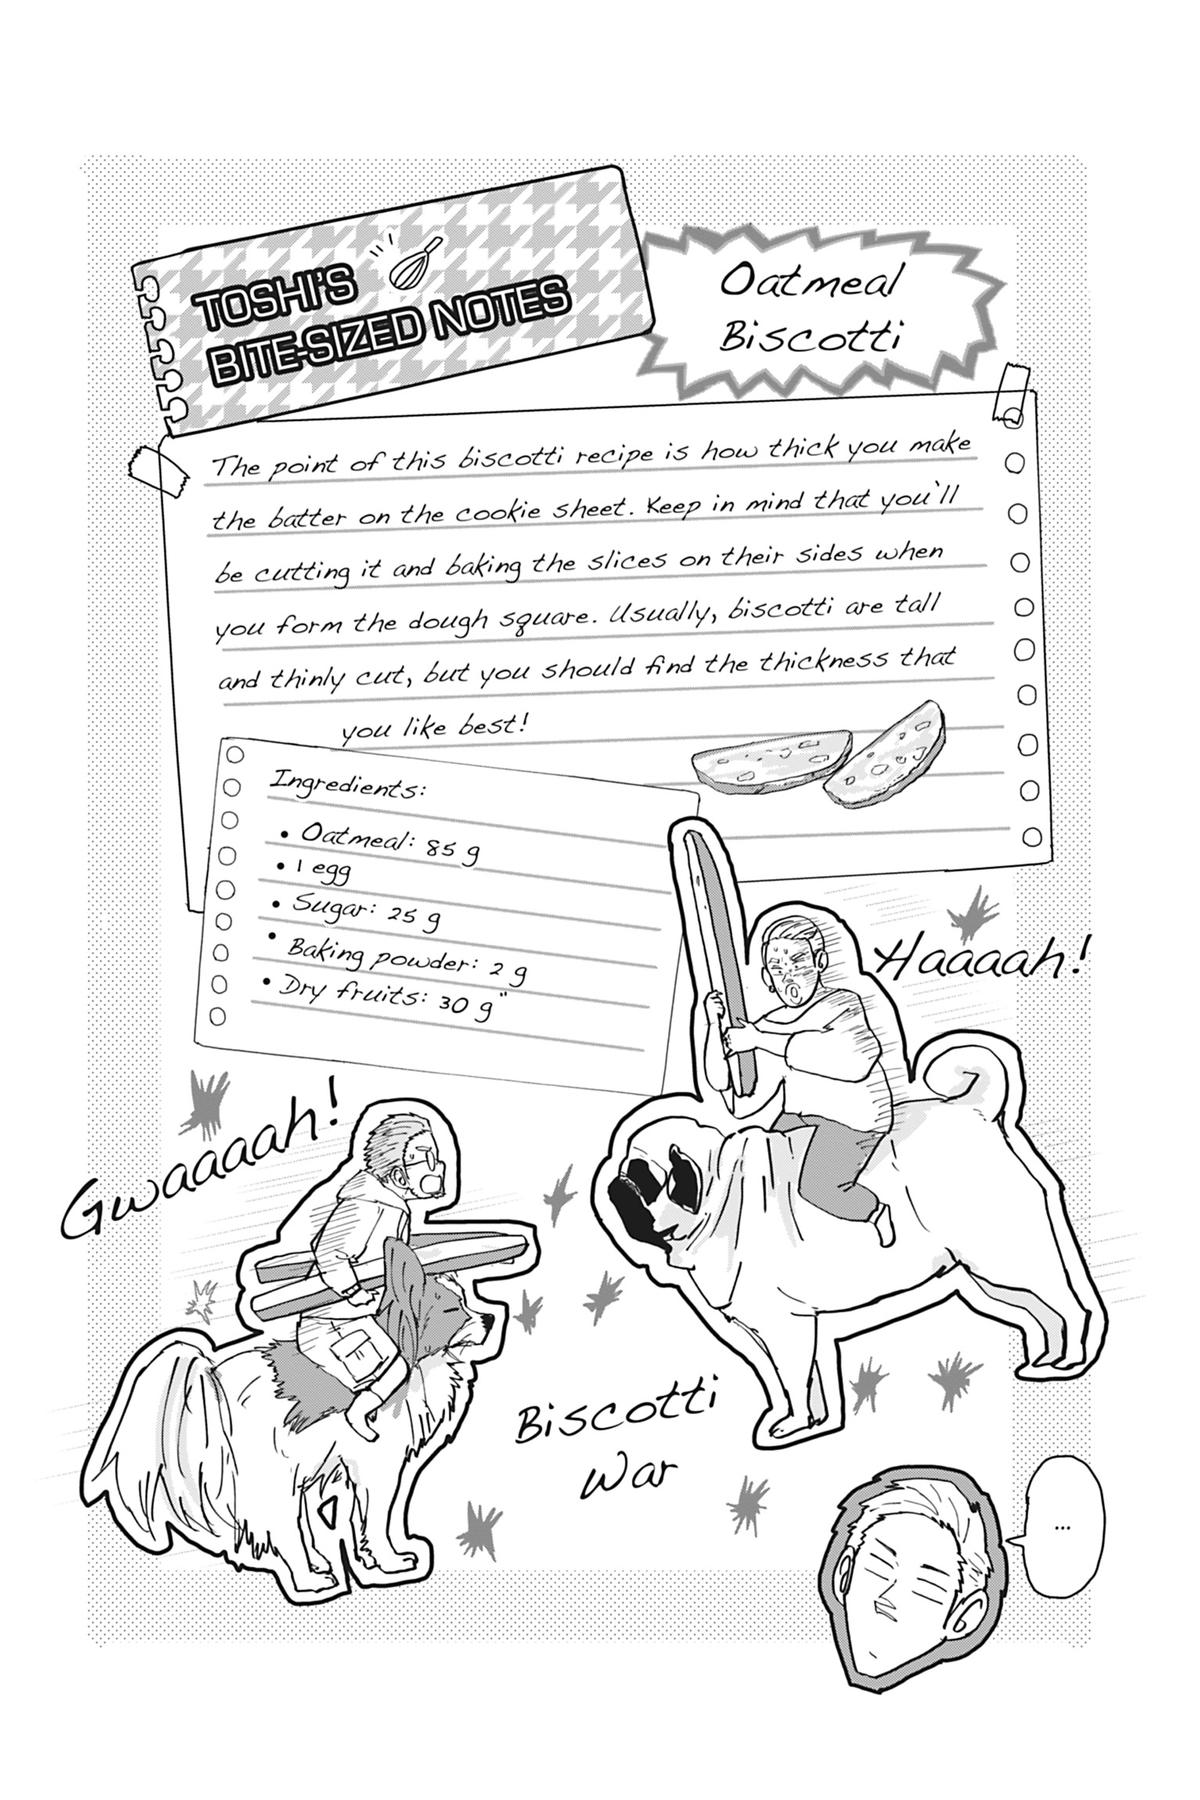 TOSHI'S
BITE-SIZED NOTES
Oatmeal
Biscotti
The point of this biscotti recipe is how thick you make
the batter on the cookie sheet. Keep in mind that you'll
be cutting it and baking the slices on their sides when
you form the dough square. Usually, biscotti are tall
and thinly cut, but you should find the thickness that
you like best!
Ingredients:
• Oatmeal: 85 g
• 1 egg
• Sugar: 25 g
• Baking powder: 2 g
• Dry fruits: 30 g"
Haaaah!
Gwaaaah!
Biscotti
War
...